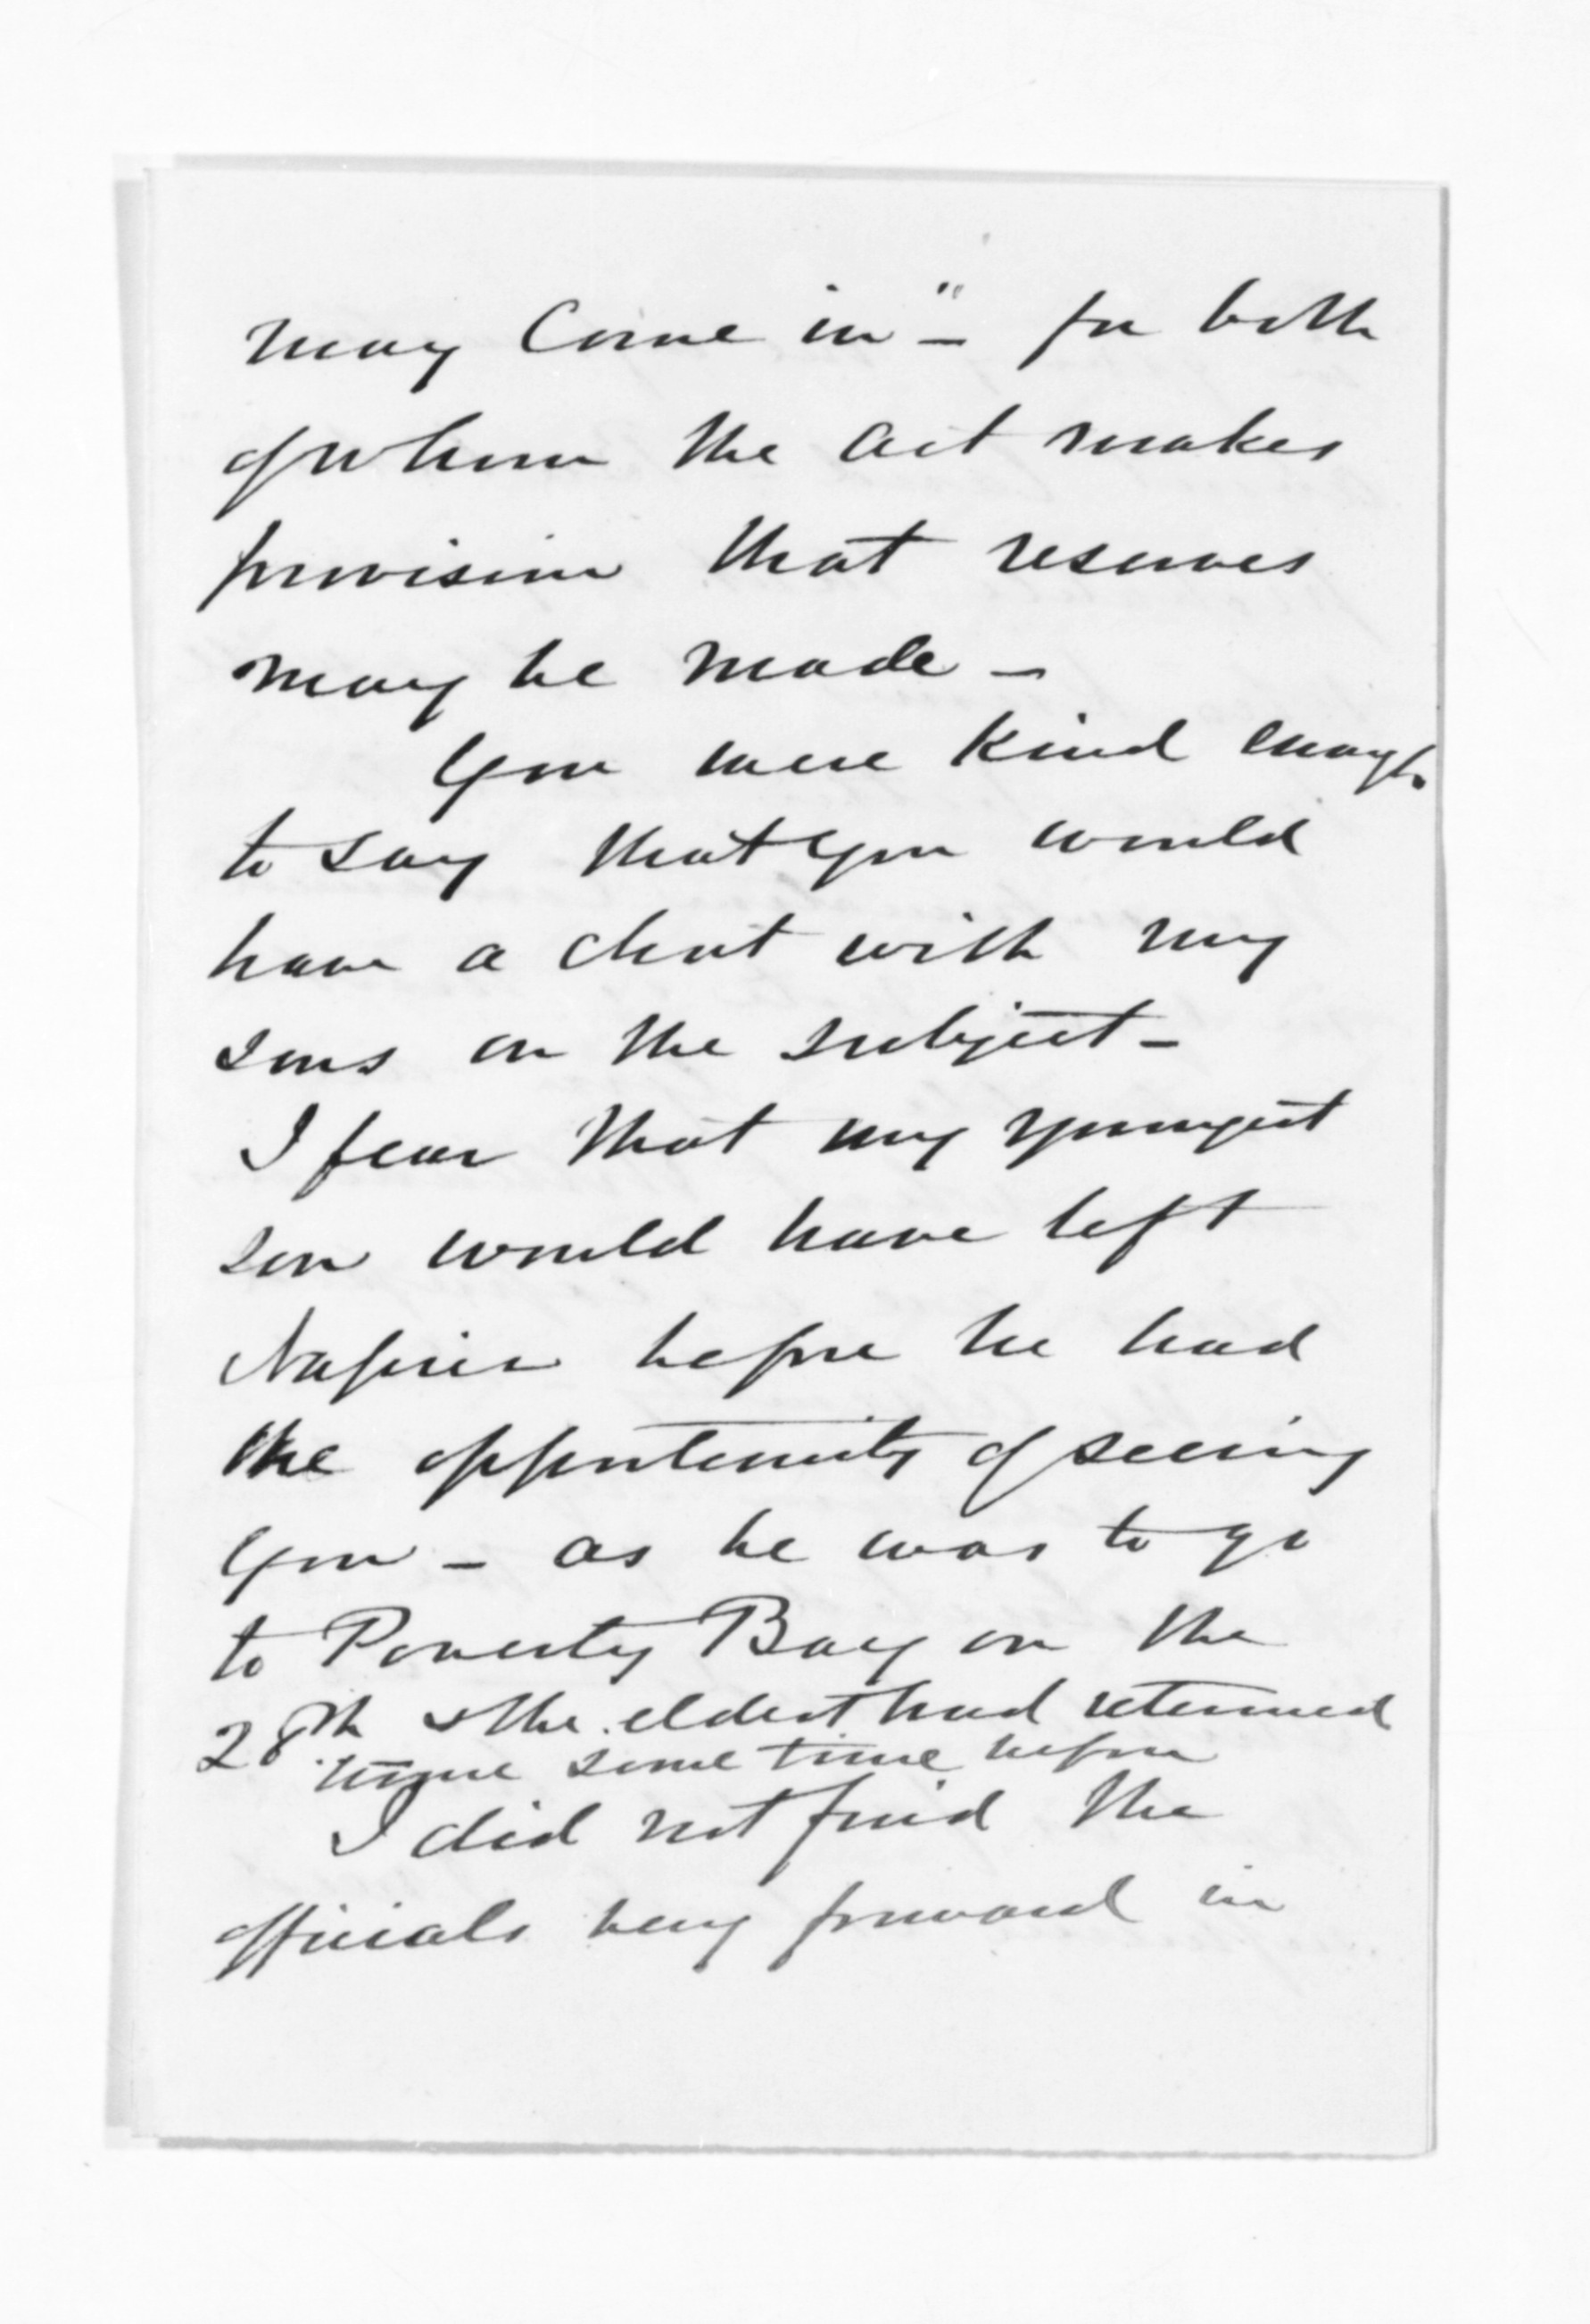 may Come in" – for both
of whom the Act makes
provision that reserves
may be made –
You were kind enough
to say that you would
have a chat with my
sons on the subject –
I fear that my youngest
son would have left
Napier before he had
the opportunity of seeing
you – as he was to go
to Poverty Bay on the
28th & the eldest had returned
home some time before
I did not find the
officials very forward in